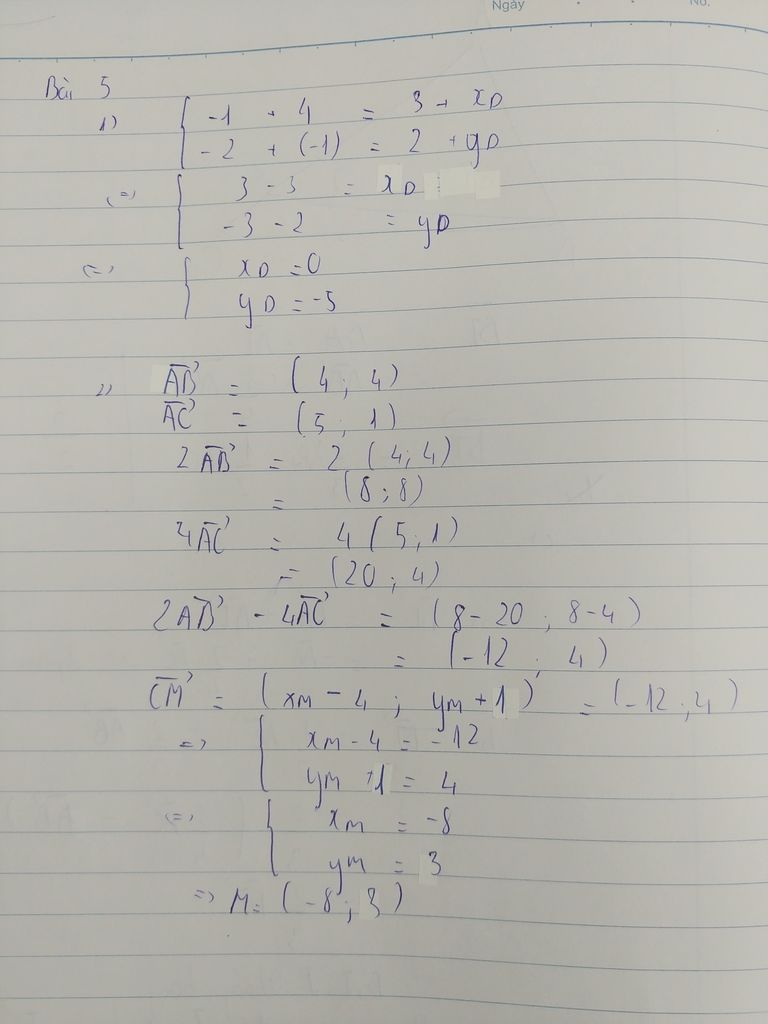 Ngày No.
Bài 5
1) { -1 + 4 = 3 + xD
-2 + (-1) = 2 + yD
(=) { 3 - 3 = xD
-3 - 2 = yD
(=) { xD = 0
yD = -5
2) AB→ = (4; 4)
AC→ = (5; 1)
2AB→ = 2 (4; 4)
= (8; 8)
4AC→ = 4 (5; 1)
= (20; 4)
2AB→ - 4AC→ = (8 - 20; 8 - 4)
= (-12; 4)
CM→ = (xM - 4; yM + 1) = (-12; 4)
=> { xM - 4 = -12
yM + 1 = 4
(=) { xM = -8
yM = 3
=> M = (-8; 3)